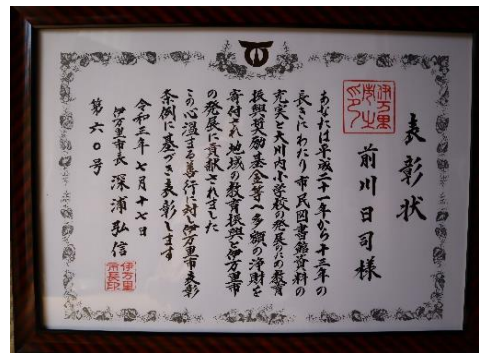 表彰状
前川日司様
あなたは平成二十一年から十三年の
長きにわたり市民図書館資料の
充実と大川内小学校の発展のため教育
振興奨励基金等へ多額の浄財を
寄付され地域の教育振興と伊万里市
の発展に貢献されました
この心温まる善行に対し伊万里市表彰
条例に基づき表彰します
令和三年七月十七日
伊万里市長 深浦弘信
第六〇号
伊万里
市長印